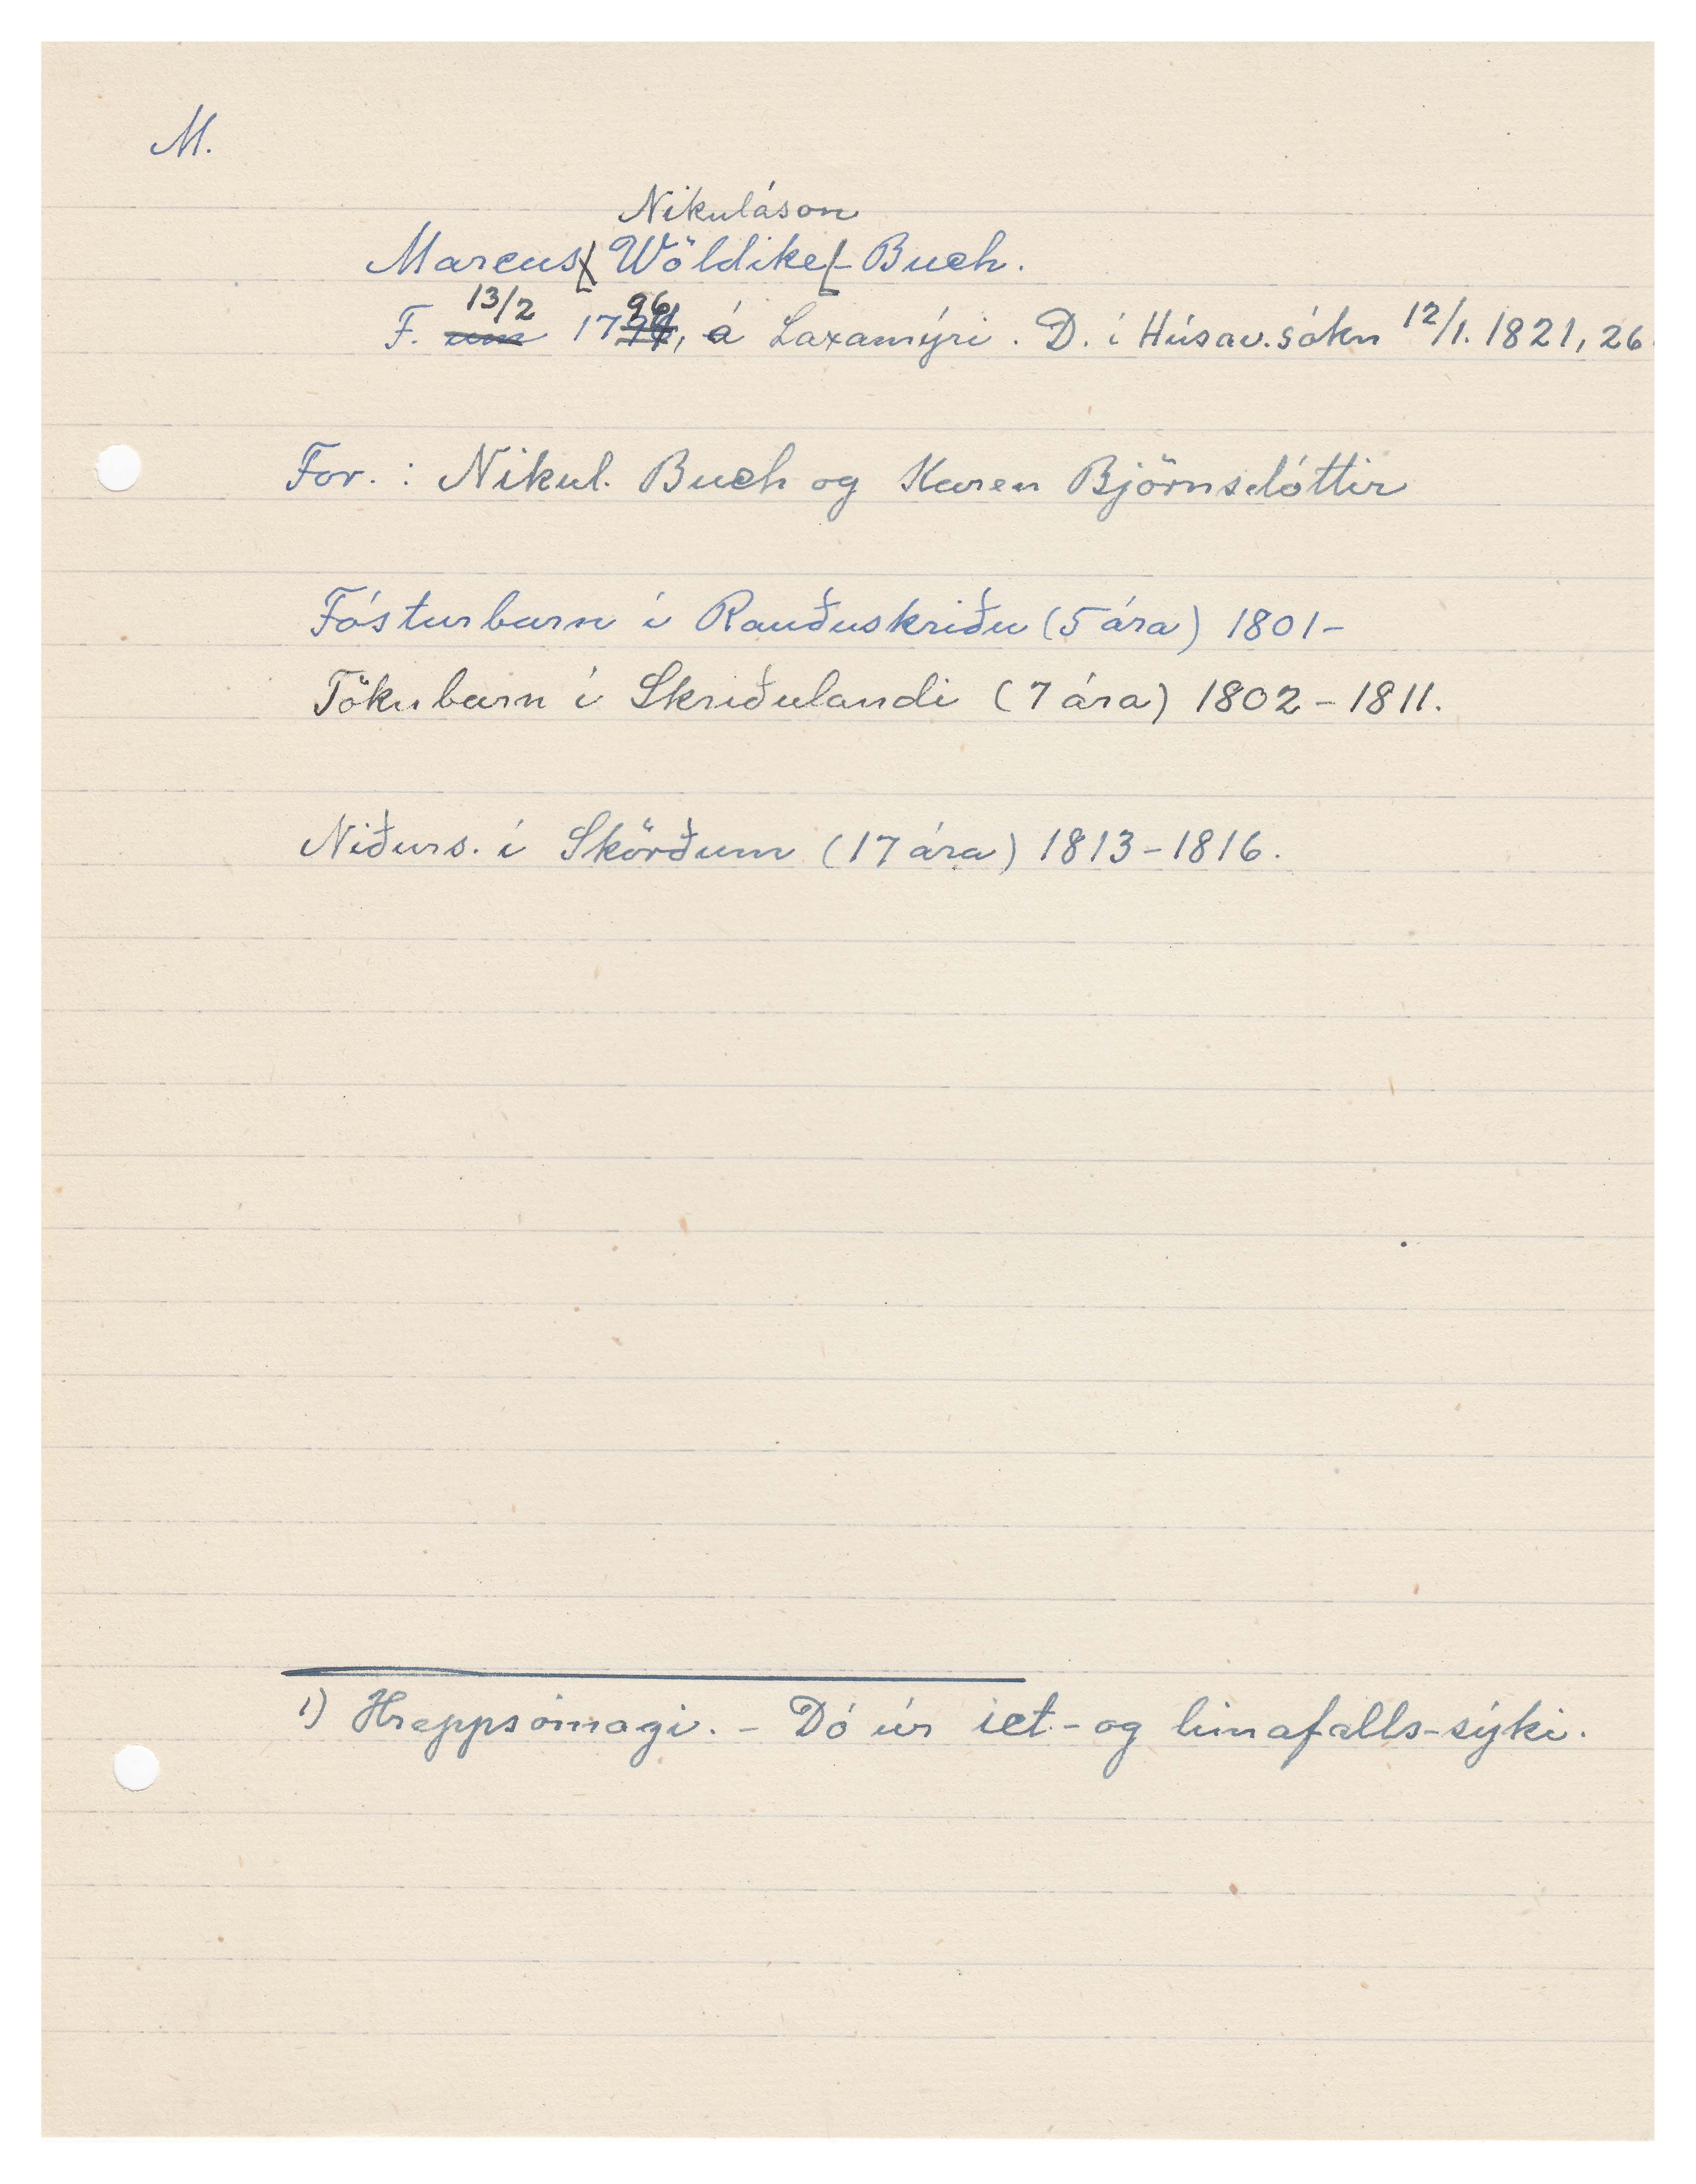 M.
Nikuláson
Marcus Wöldike - Buch.
13/2 96
F. um 17, á Laxamýri. D. í Húsav.sókn 12/1. 1821, 26
For.: Nikul. Buch og Karen Björnsdóttir
Fósturbarn í Rauðuskriðu (5 ára) 1801-
Tökubarn í Skriðulandi (7 ára) 1802-1811.
Niðurs. í Skörðum (17 ára) 1813-1816.
1) Hreppsómagi. - Dó úr ict- og limafalls-sýki.